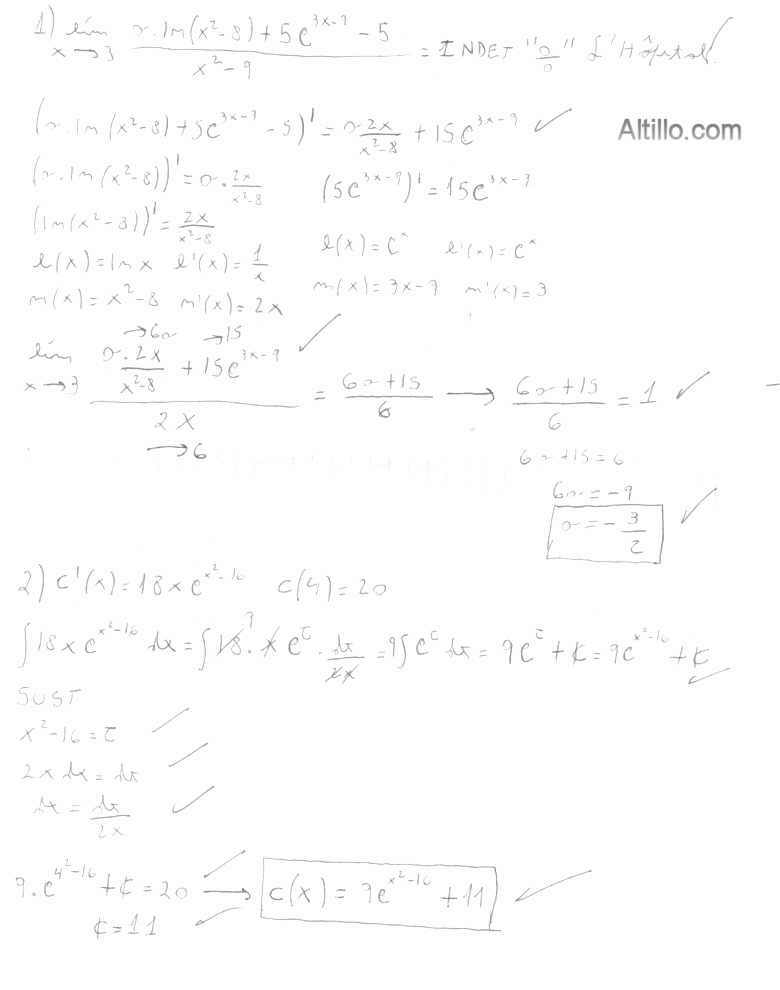 1) lím x→3 (a.ln(x²-8)+5e^(3x-9)-5)/(x²-9) = INDET "0/0" L'Hôpital.
(a.ln(x²-8)+5e^(3x-9)-5)' = a.2x/(x²-8) + 15e^(3x-9)
Altillo.com
(a.ln(x²-8))' = a.2x/(x²-8) (5e^(3x-9))' = 15e^(3x-9)
(ln(x²-8))' = 2x/(x²-8)
l(x)=ln x l'(x)=1/x l(x)=e^x l'(x)=e^x
m(x)=x²-8 m'(x)=2x m(x)=3x-9 m'(x)=3
→6a →15
lím x→3 (a.2x/(x²-8) + 15e^(3x-9))/(2x) = (6a+15)/6 → (6a+15)/6 = 1
→6
6a+15=6
6a=-9
a=-3/2
2) C'(x)=18xe^(x²-16) C(4)=20
∫18xe^(x²-16) dx = ∫18.x e^t . dt/2x = 9∫e^t dt = 9e^t + K = 9e^(x²-16) + K
9
SUST
x²-16=t
2x dx = dt
dx = dt/2x
9.e^(4²-16) + K = 20 → C(x) = 9e^(x²-16) + 11
K=11